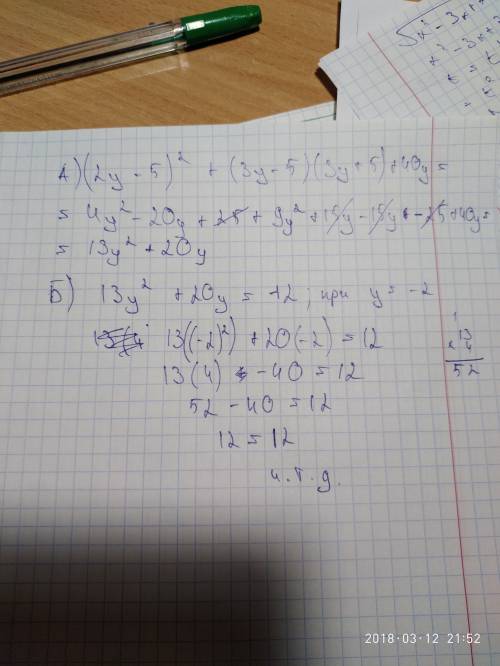 5x² - 3x +
x² - 3x +
А) (2y - 5)² + (3y - 5)(3y + 5) + 40y =
= 4y² - 20y + 25 + 9y² + 15y - 15y + - 25 + 40y =
= 13y² + 20y
Б) 13y² + 20y = 12; при y = -2
13((-2)²) + 20(-2) = 12
13(4) - 40 = 12
52 - 40 = 12
12 = 12
ч.т.д.
1
13
× 4
52
2018-03-12 21:52